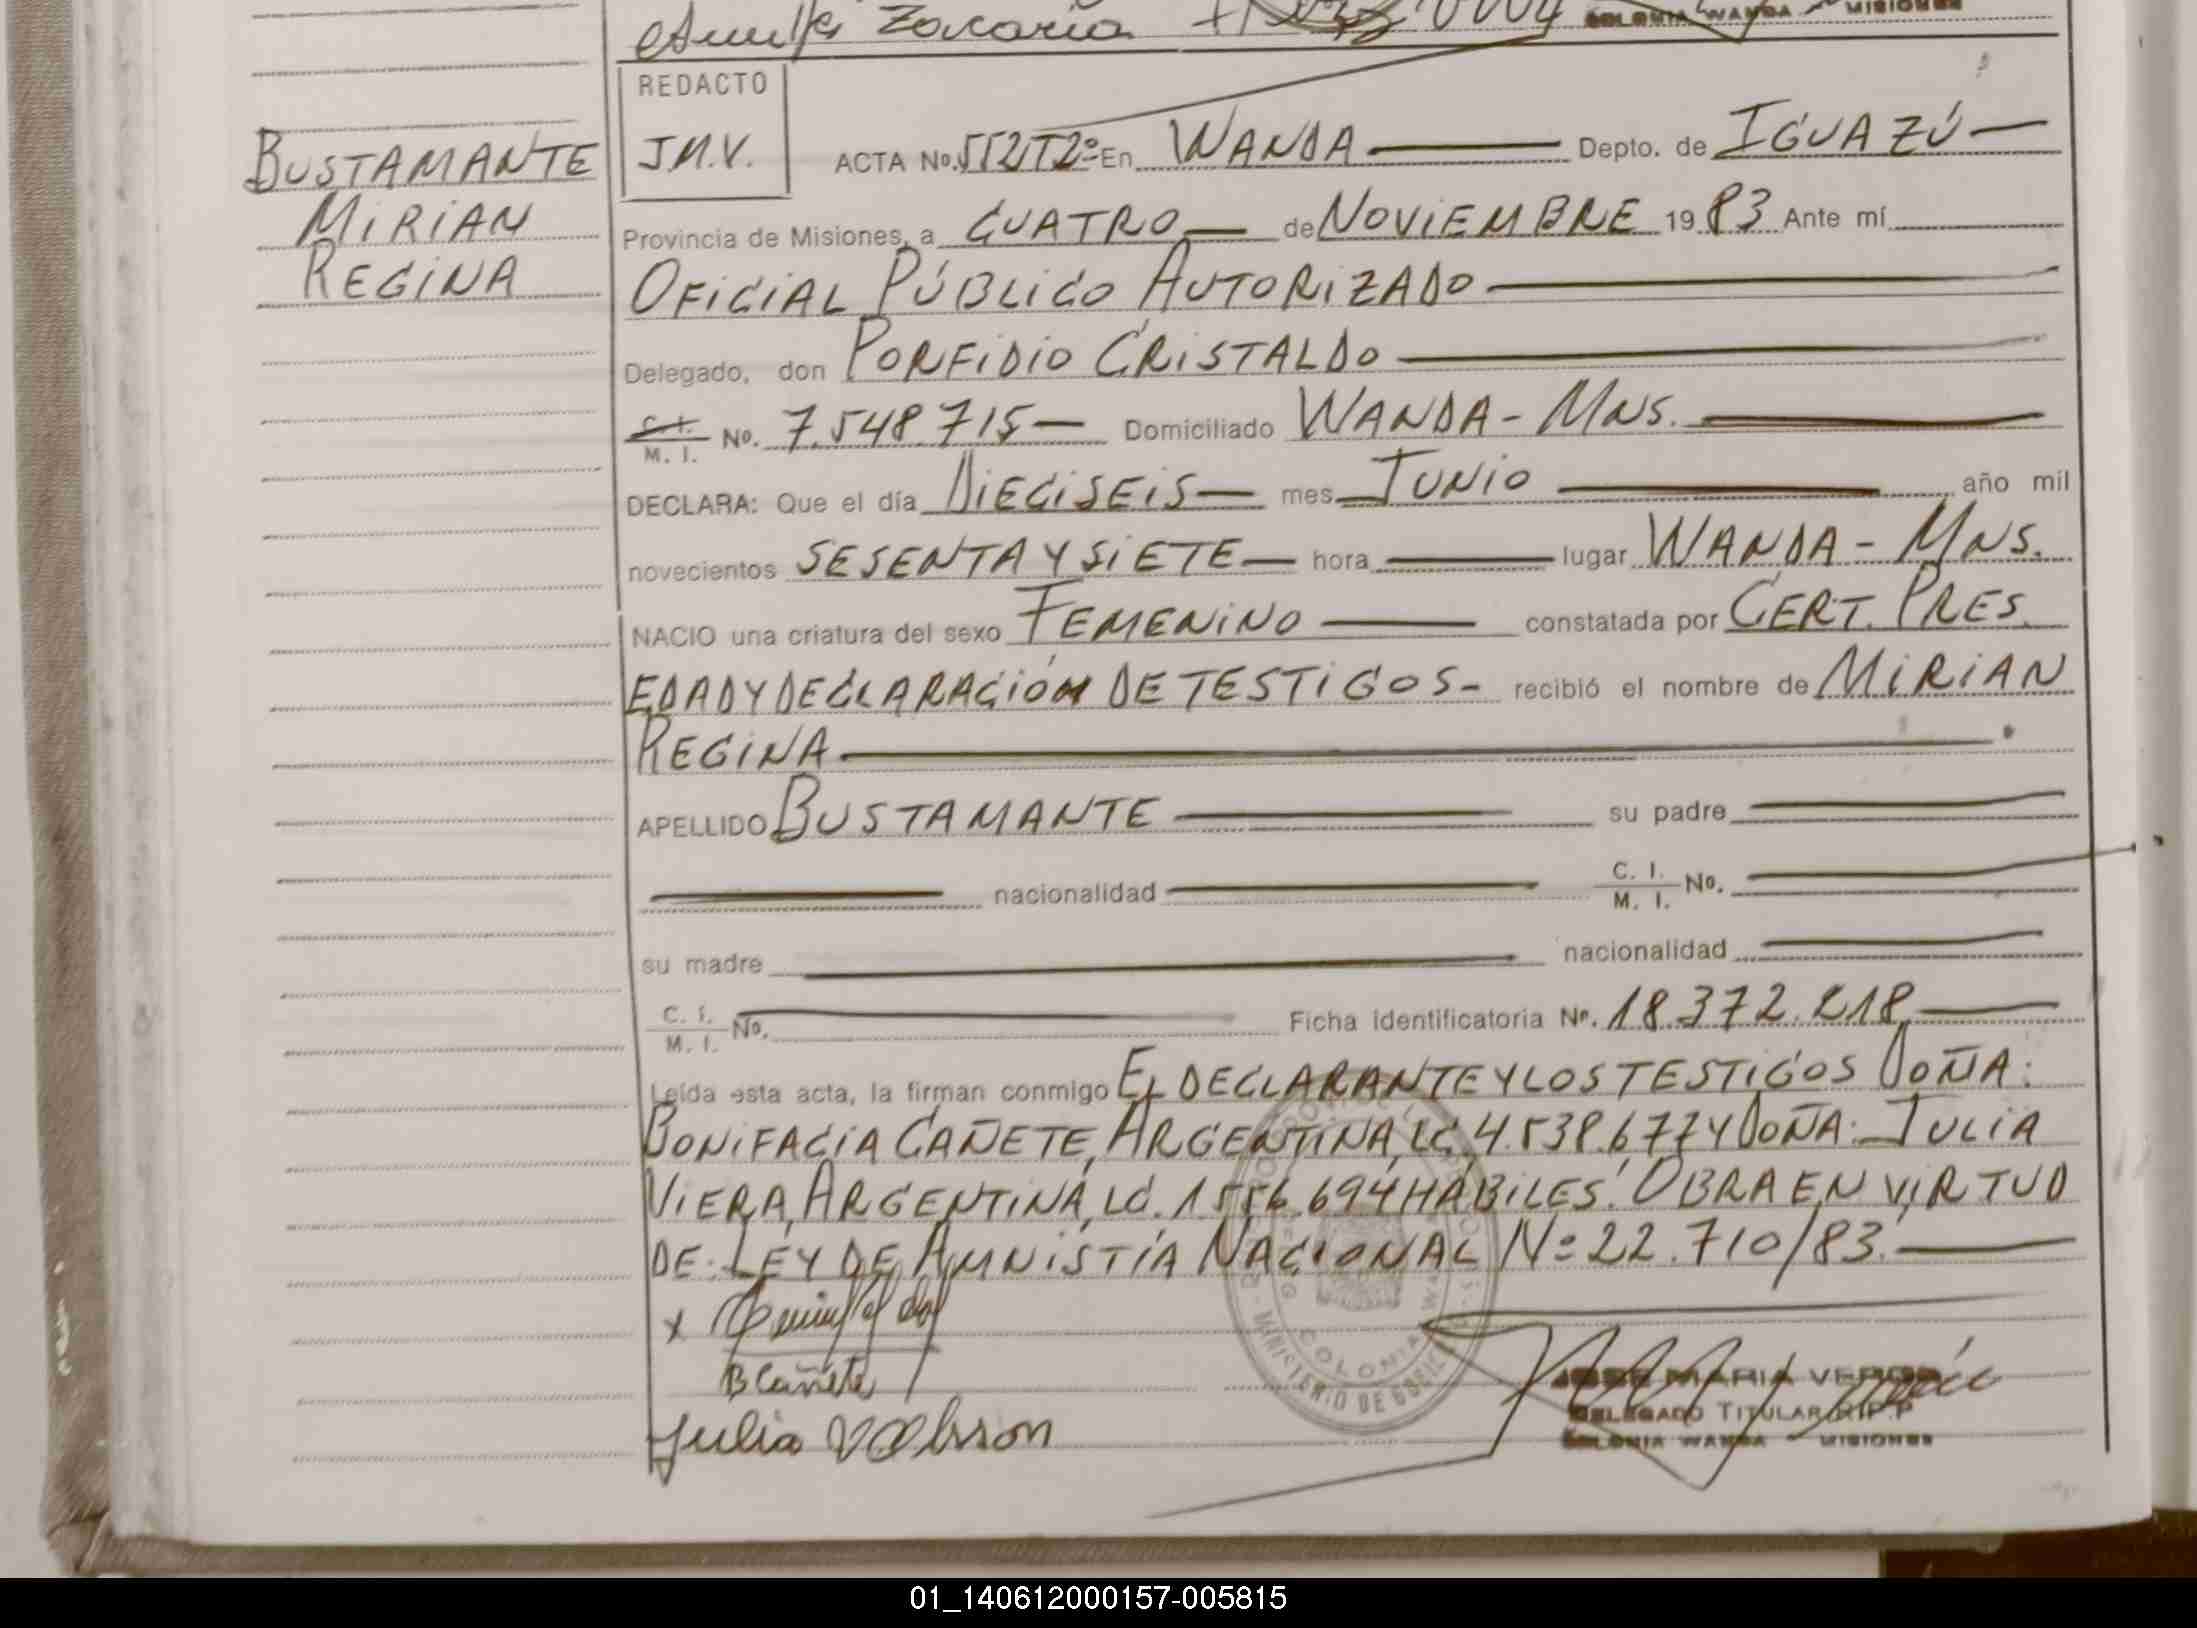 Zacaria
COLONIA WANDA - MISIONES
BUSTAMANTE
MIRIAN
REGINA
REDACTO
J.M.V.
ACTA No. 552T2º En WANDA Depto. de IGUAZÚ
Provincia de Misiones, a CUATRO de NOVIEMBRE 1983 Ante mí
OFICIAL PÚBLICO AUTORIZADO
Delegado, don PORFIDIO CRISTALDO
C. I. / M. I. No. 7.548.715 Domiciliado WANDA - MNS.
DECLARA: Que el día DIECISEIS mes JUNIO año mil
novecientos SESENTA Y SIETE hora lugar WANDA - MNS.
NACIO una criatura del sexo FEMENINO constatada por CERT. PRES.
EDAD Y DECLARACIÓN DE TESTIGOS - recibió el nombre de MIRIAN
REGINA
APELLIDO BUSTAMANTE su padre
nacionalidad C. I. / M. I. No.
su madre nacionalidad
C. I. / M. I. No. Ficha identificatoria No. 18.372.218
Leída esta acta, la firman conmigo EL DECLARANTE Y LOS TESTIGOS DOÑA:
BONIFACIA CAÑETE, ARGENTINA, LC. 4.538.677 Y DOÑA: JULIA
VIERA, ARGENTINA, LC. 1.556.694 HÁBILES. OBRA EN VIRTUD
DE LEY DE AMNISTÍA NACIONAL Nº 22.710/83.
x
B Cañete
Julia
JOSE MARIA
DELEGADO TITULAR R.P.P
COLONIA WANDA - MISIONES
COLONIA WANDA
MINISTERIO DE GOBIERNO
01_140612000157-005815